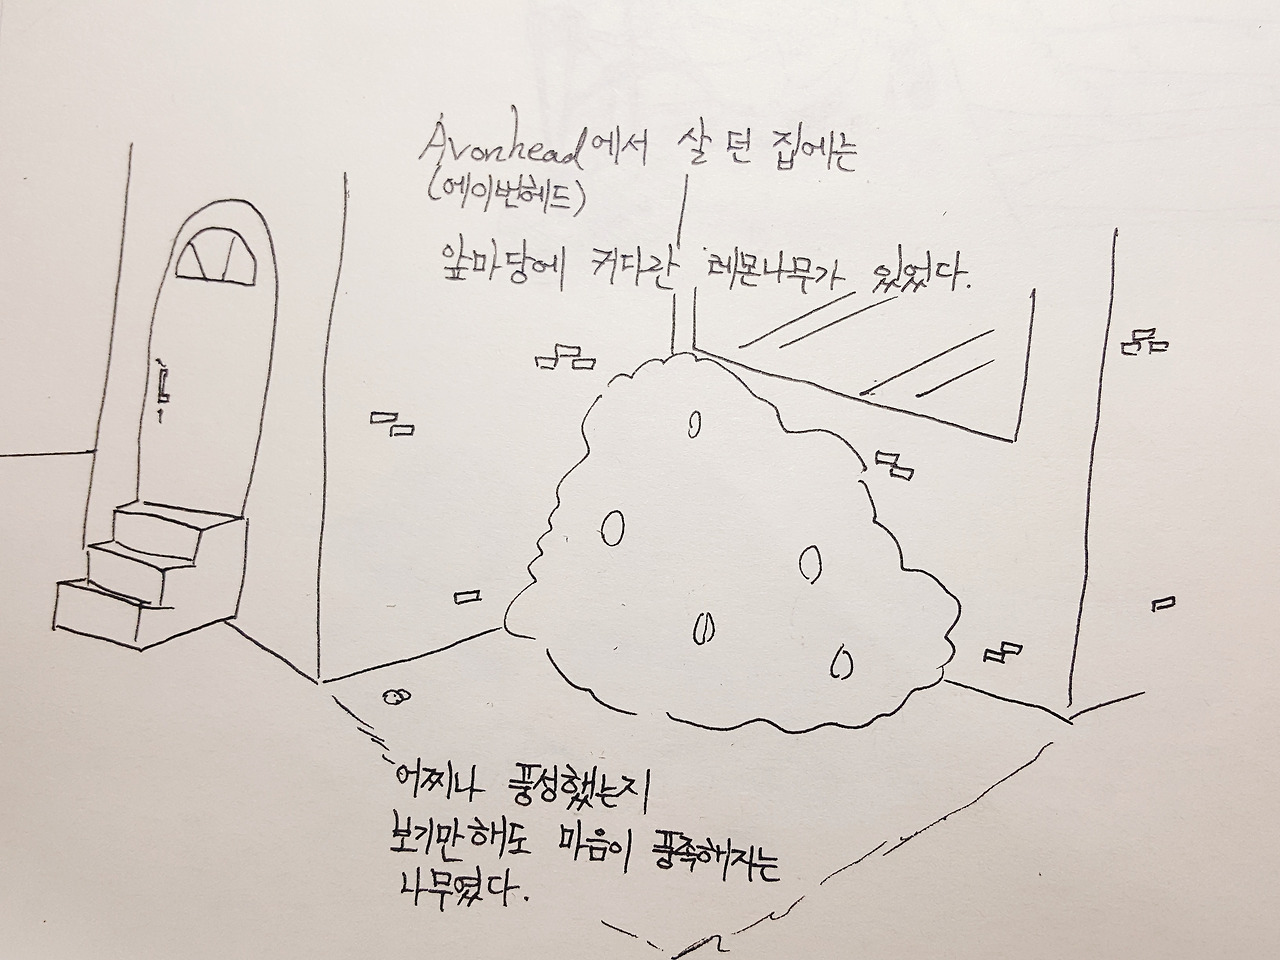 Avonhead에서 살던 집에는
(에이번헤드)
앞마당에 커다란 레몬나무가 있었다.
어찌나 풍성했는지
보기만해도 마음이 풍족해지는
나무였다.